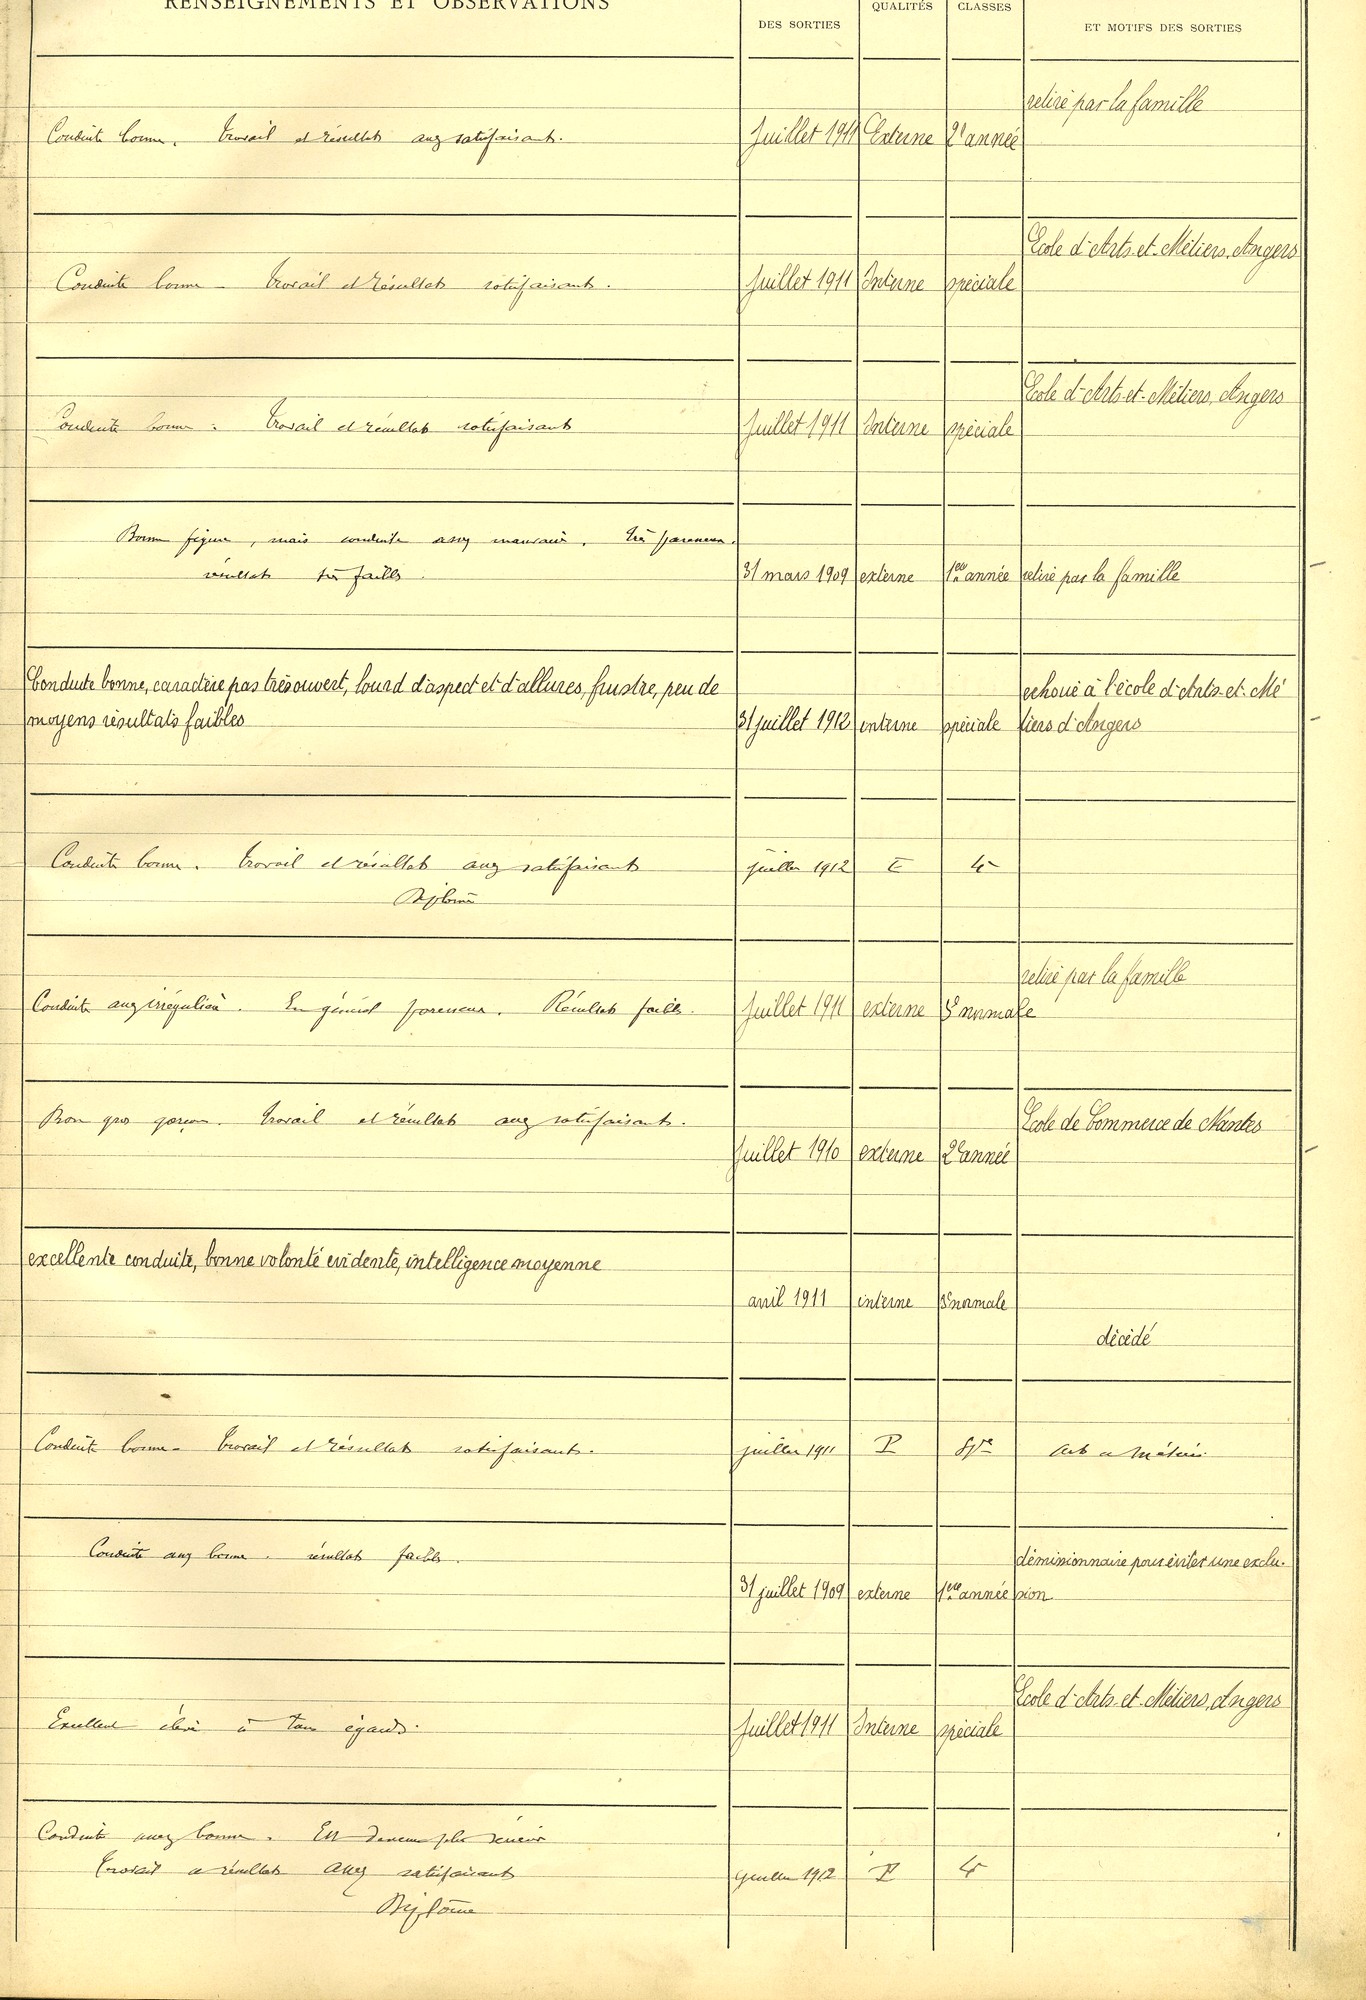 RENSEIGNEMENTS ET OBSERVATIONS
DES SORTIES
QUALITÉS
CLASSES
ET MOTIFS DES SORTIES
retiré par la famille
Conduite bonne. Travail et résultats assez satisfaisants. Juillet 1911 Externe 2e année
Ecole d'Arts-et-Métiers, Angers
Conduite bonne - Travail et résultats satisfaisants. Juillet 1911 Interne spéciale
Ecole d'Arts-et-Métiers, Angers
Conduite bonne. Travail et résultats satisfaisants Juillet 1911 Interne spéciale
Bonne figure, mais conduite assez mauvaise. Très paresseux.
résultats très faibles. 31 mars 1909 externe 1ère année retiré par la famille
Conduite bonne, caractère pas très ouvert, lourd d'aspect et d'allures, frustre, peu de echoué à l'école d'Arts-et-Mé
moyens résultats faibles 31 juillet 1912 interne spéciale tiers d'Angers
Conduite bonne. Travail et résultats assez satisfaisants juillet 1912 E 4e
Diplômé
retiré par la famille
Conduite assez irrégulière. En général paresseux. Résultats faibles. Juillet 1911 externe 3e normale
Bon gros garçon. Travail et résultats assez satisfaisants. Ecole de Commerce de Nantes
Juillet 1910 externe 2e année
excellente conduite, bonne volonté evidente, intelligence moyenne
avril 1911 interne 3e normale
décédé
Conduite bonne - Travail et résultats satisfaisants. juillet 1911 P Sple Arts et Métiers
Conduite assez bonne. résultats faibles. démissionnaire pour éviter une exclu-
31 juillet 1909 externe 1ère année sion
Ecole d'Arts-et-Métiers, Angers
Excellent élève à tous égards. Juillet 1911 Interne spéciale
Conduite assez bonne. Est devenu plus sérieux
Travail et résultats assez satisfaisants juillet 1912 P 4e
Diplôme